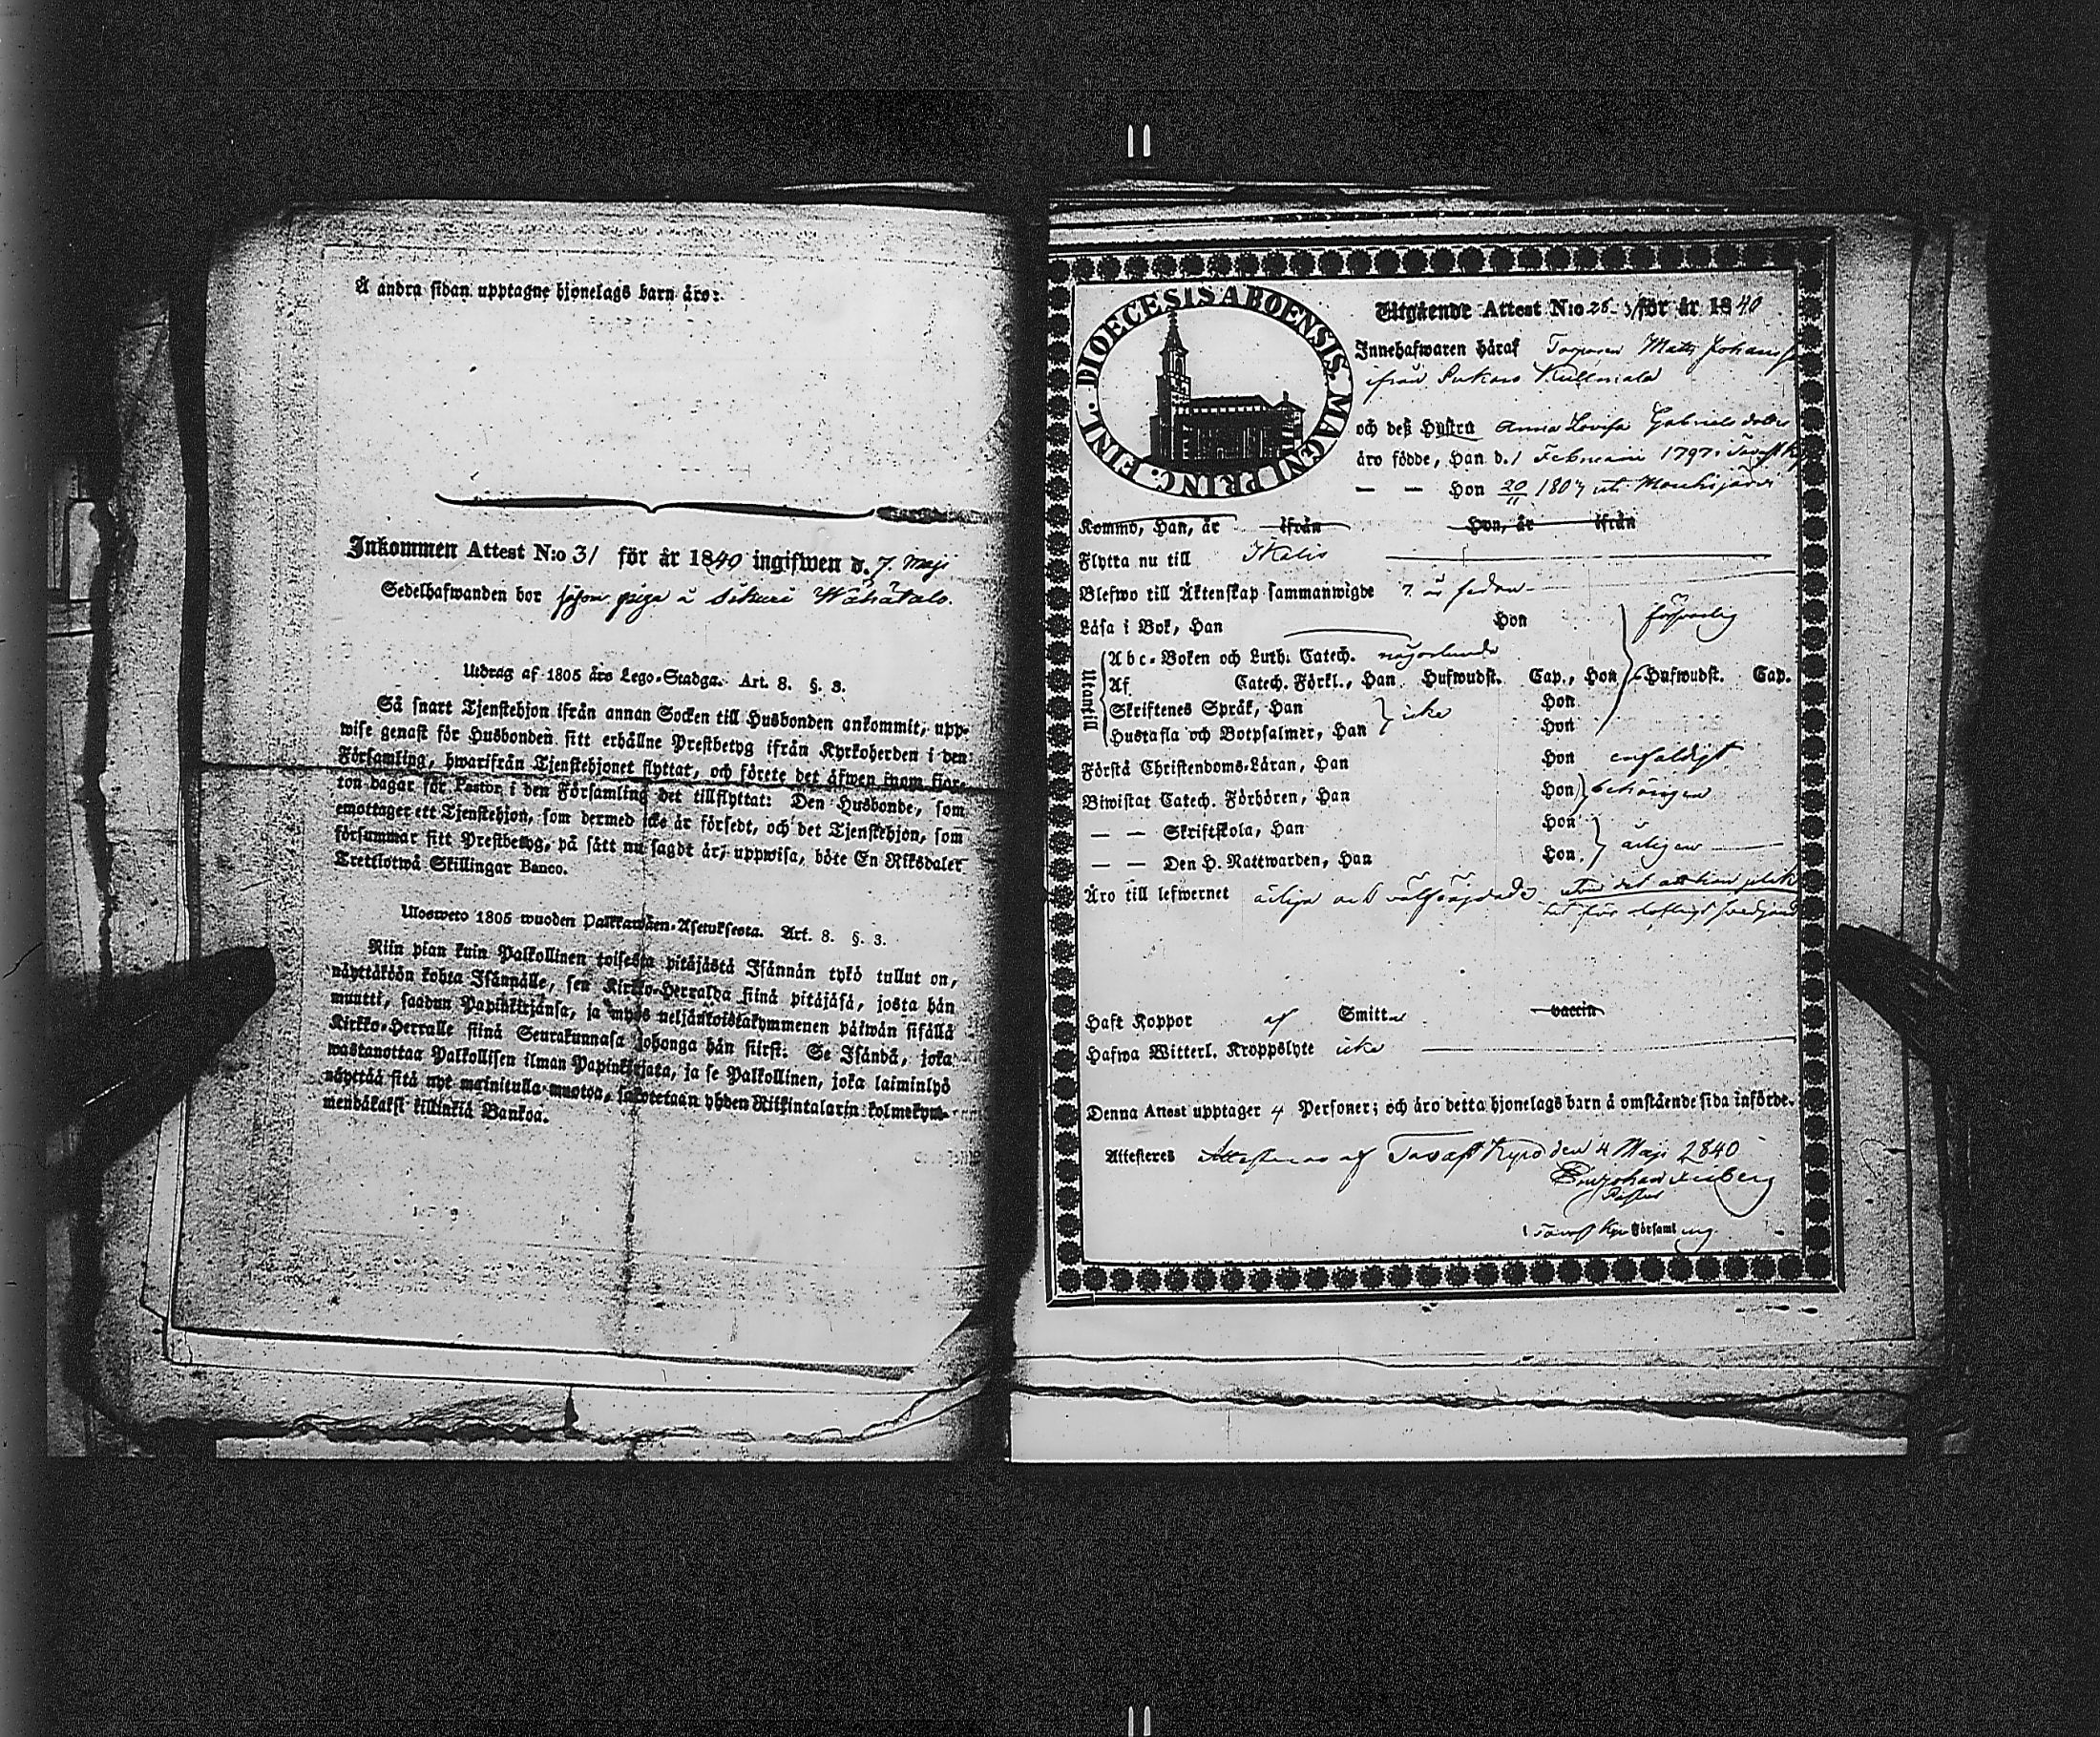 Å andra sidan upptagne hjonelags barn äro:
Inkommen Attest N:o 31 för år 1840 ingifwen d. 7 Maji
Sedelhafwanden bor såsom piga å Sikuri Wähätalo.
Utdrag af 1805 års Lego-Stadga. Art. 8. §. 3.
Så snart Tjenstehjon ifrån annan Socken till Husbonden ankommit, upp-
wise genast för Husbonden sitt erhållne Prestbetyg ifrån Kyrkoherden i den
Församling, hwarifrån Tjenstehjonet flyttat, och förete det äfwen inom fjor-
ton dagar för Pastor i den Församling det tillflyttat: Den Husbonde, som
emottager ett Tjenstehjon, som dermed icke är försedt, och det Tjenstehjon, som
försummar sitt Prestbetyg, på sätt nu sagdt är, uppwisa, böte En Riksdaler
Trettiotwå Skillingar Banco.
Ulosweto 1805 wuoden Palkkawäen-Asetuksesta. Art. 8. §. 3.
Niin pian kuin Palkollinen toisesta pitäjästä Isännän tykö tullut on,
näyttäköön kohta Isännälle, sen Kirkko-Herralda siinä pitäjäsä, josta hän
muutti, saadun Papinkirjansa, ja myös neljäntoistakymmenen päiwän sisällä
Kirkko-Herralle siinä Seurakunnasa johonga hän siirsi: Se Isändä, joka
wastanottaa Palkollisen ilman Papinkirjata, ja se Palkollinen, joka laiminlyö
näyttää sitä nyt mainitulla muotoa, sakotetaan yhden Riikintalarin kolmekym-
mendäkaksi killinkiä Bankoa.
DIOECESIS ABOENSIS. MAGNI PRINC. FINL.
Utgående Attest N:o 26 för år 1840
Innehafwaren häraf Torparen Matts Johanss
ifrån Kullmala
och deß Hustru Anna Lovisa Gabriels dotter
äro födde, Han d. 1 Februarii 1797 i Tavastky
— — Hon 20/11 1807 uti Mouhijärvi
Kommo, Han, år ifrån Hon, år ifrån
Flytta nu till Ikalis
Blefwo till Äktenskap sammanwigde 7 år sedan
Läsa i Bok, Han Hon försvarlig
Utantill
Abc-Boken och Luth. Catech. någorlunda
Af Catech. Förkl., Han Hufwudst. Cap., Hon Hufwudst. Cap.
Skriftenes Språk, Han icke Hon
Hustafla och Botpsalmer, Han Hon
Förstå Christendoms-Läran, Han Hon enfaldigt
Biwistat Catech. Förhören, Han Hon behörigen
— — Skriftskola, Han Hon
— — Den H. Nattwarden, Han Hon årligen
Äro till lefwernet ärliga och välfrägdade utom det att han plik
tat för
Haft Koppor af Smitta vaccin
Hafwa Witterl. Kroppslyte icke
Denna Attest upptager 4 Personer; och äro detta hjonelags barn å omstående sida införde.
Attesteres af Tavast Kyro den 4 Maji 1840
Pastor
i Tavast Kyro Församling